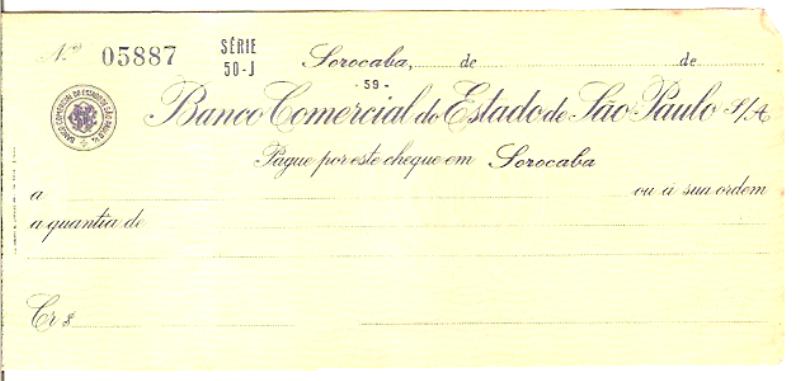 Nº 05887 SÉRIE 50-J Sorocaba, de de
- 59 -
Banco Comercial do Estado de São Paulo S/A
BANCO COMERCIAL DO ESTADO DE SÃO PAULO S/A
Pague por este cheque em Sorocaba
a ou à sua ordem
a quantia de
Cr $